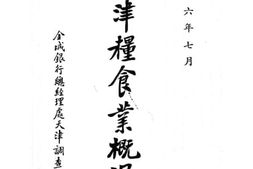 六年七月
津糧食業概況
金城銀行總經理處天津調查